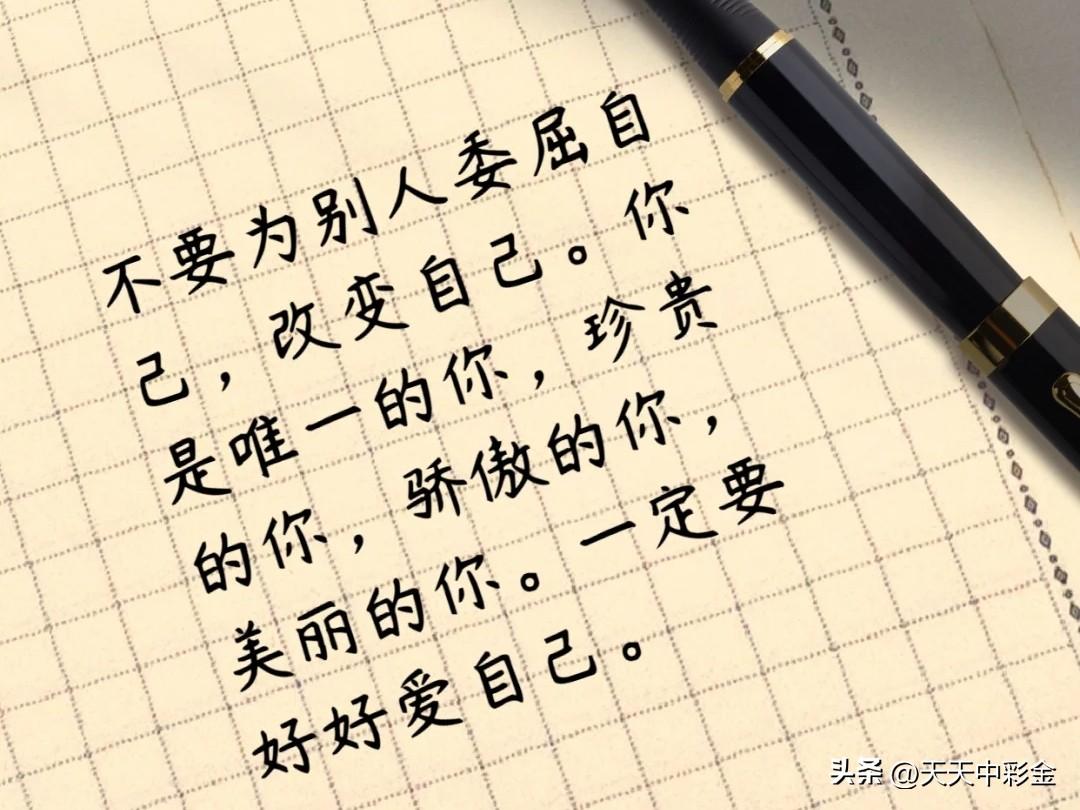 不要为别人委屈自
己，改变自己。你
是唯一的你，珍贵
的你，骄傲的你，
美丽的你。一定要
好好爱自己。
头条 @天天中彩金